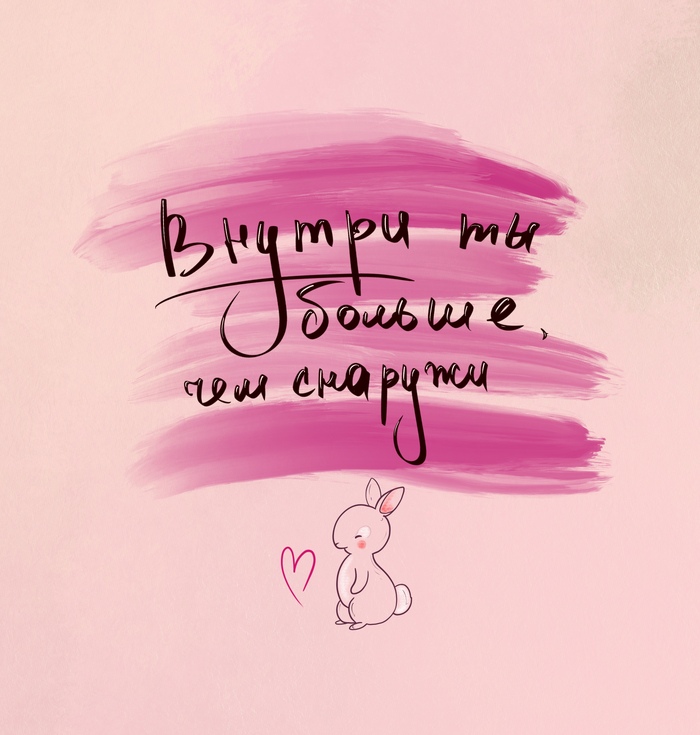 Внутри ты
больше,
чем снаружи